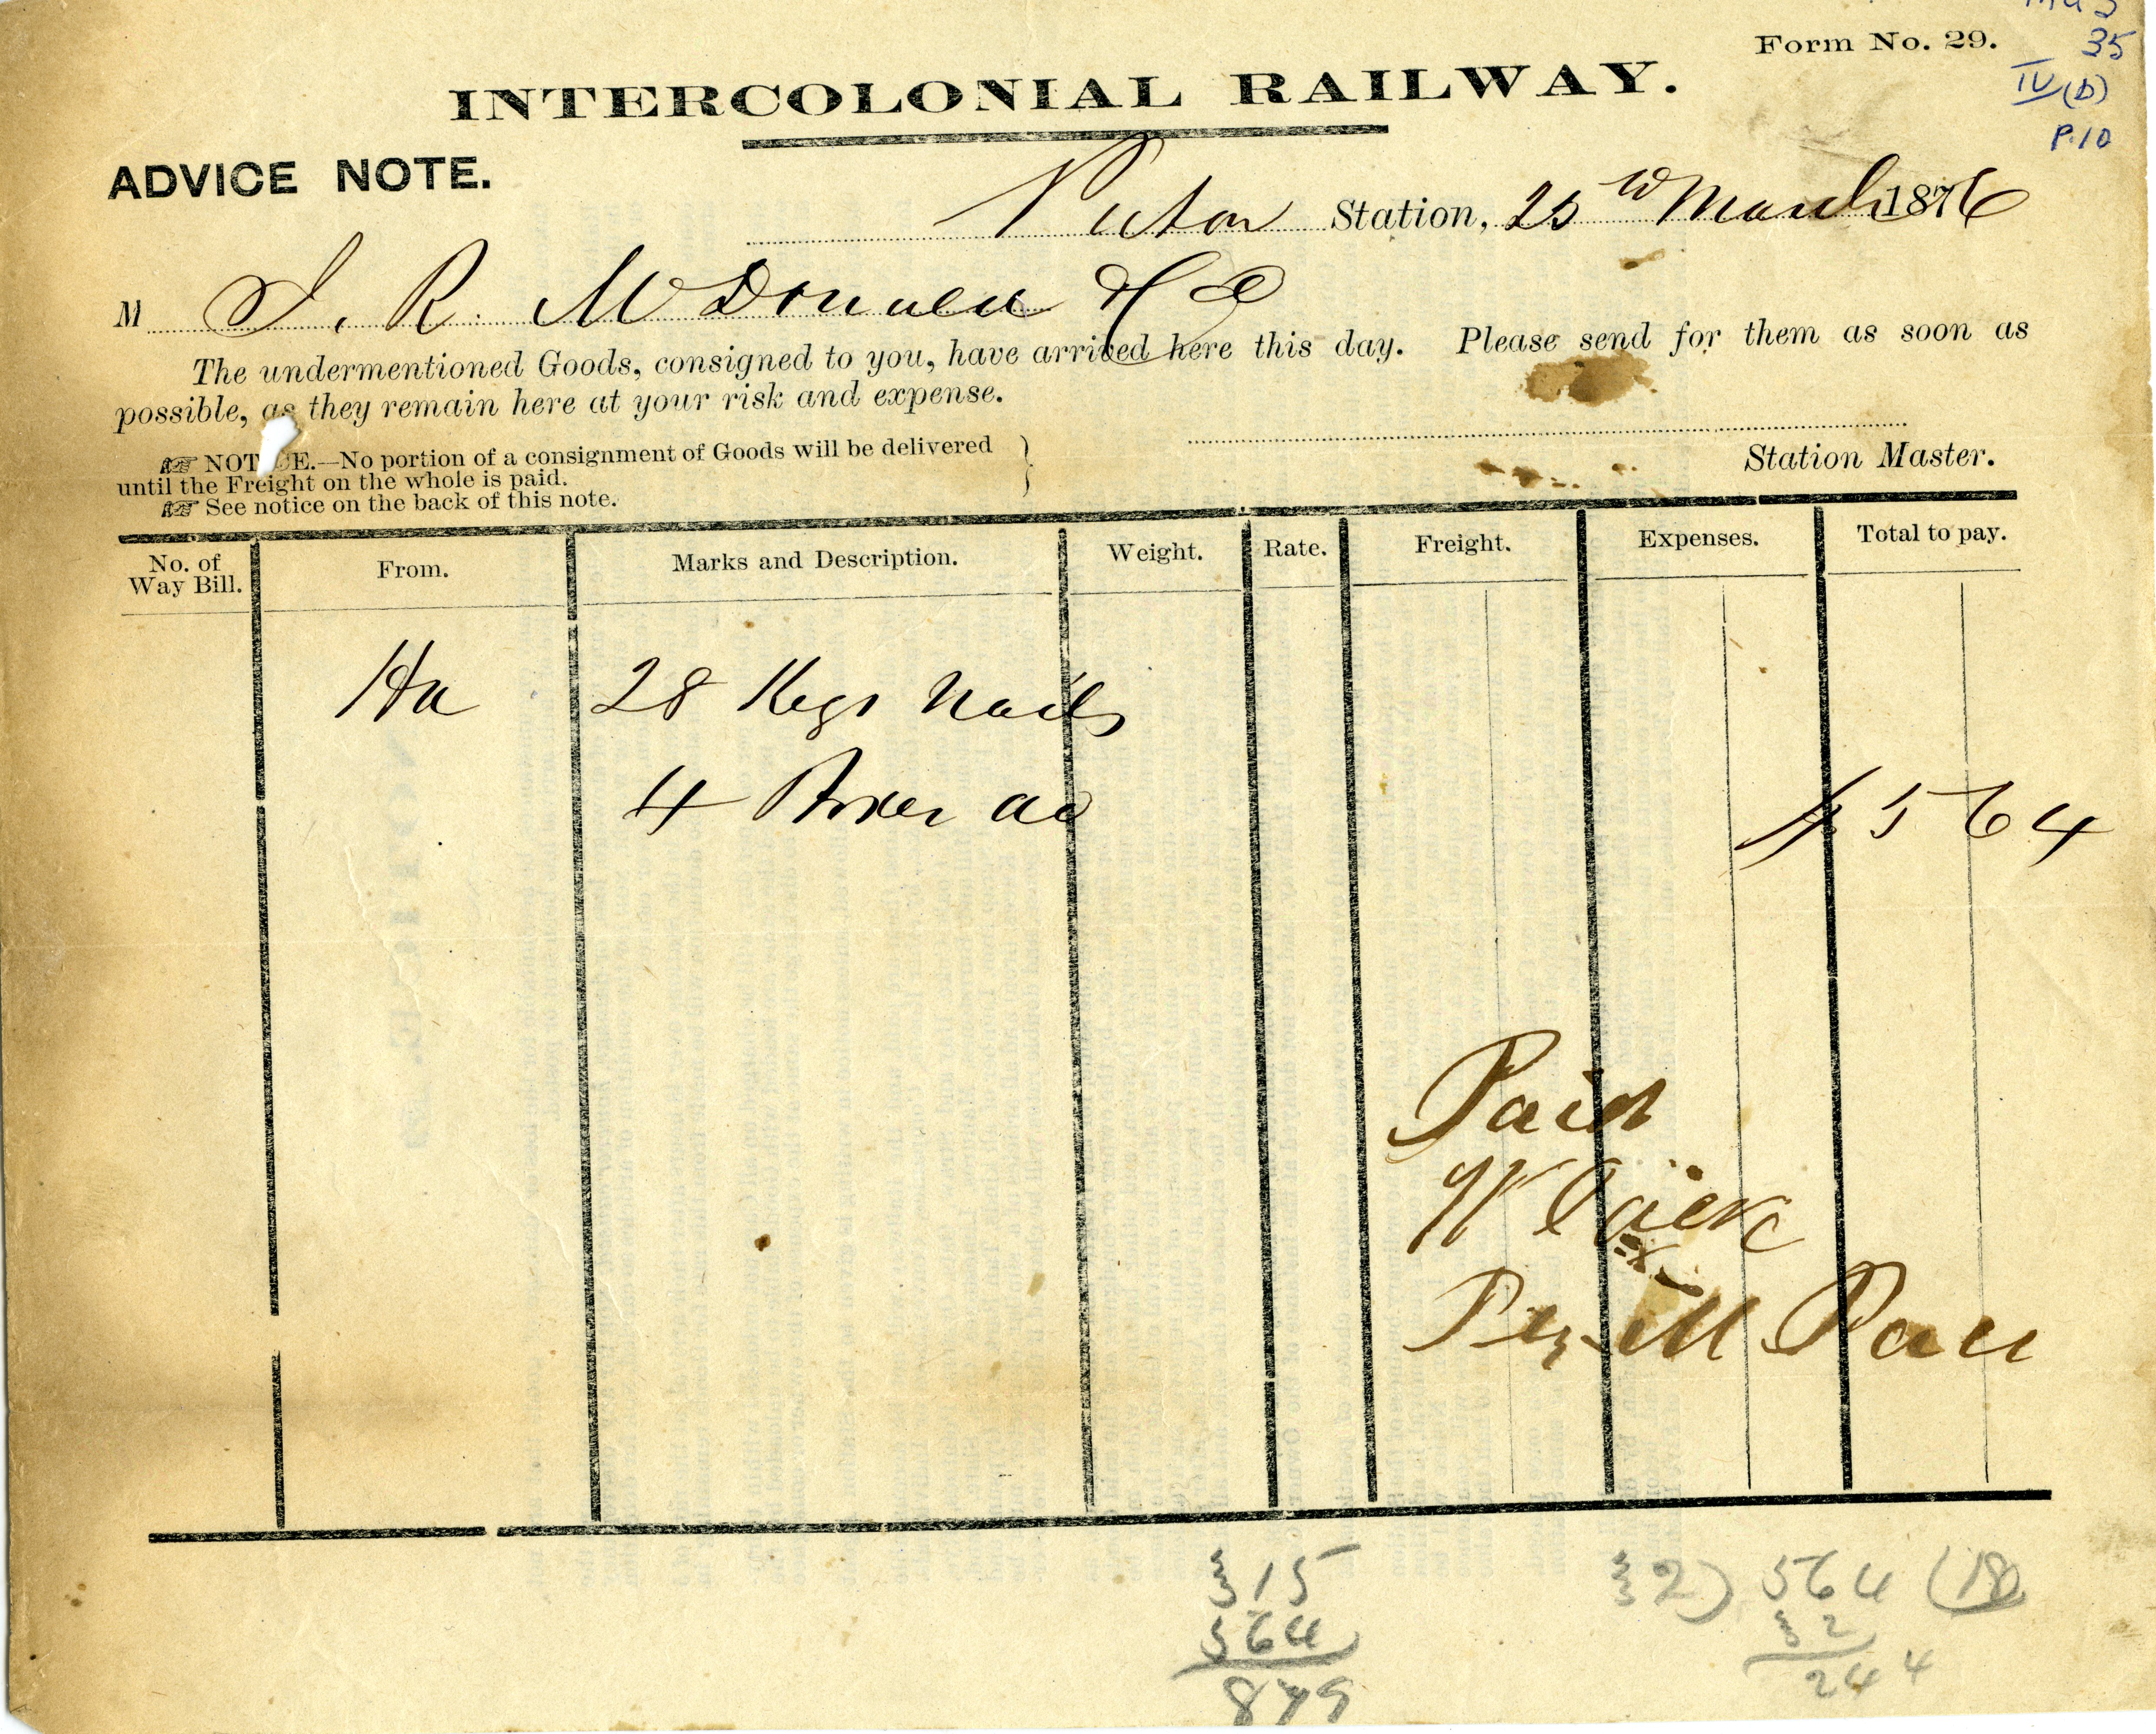 Form No. 29.
35
IV (b)
P.10
INTERCOLONIAL RAILWAY.
ADVICE NOTE.
Pictou Station, 25 March 1876
M J. R. McDonald & Co
The undermentioned Goods, consigned to you, have arrived here this day. Please send for them as soon as
possible, as they remain here at your risk and expense.
☞ NOTICE.—No portion of a consignment of Goods will be delivered
until the Freight on the whole is paid.
☞ See notice on the back of this note.
Station Master.
No. of Way Bill. From. Marks and Description. Weight. Rate. Freight. Expenses. Total to pay.
Ha 28 Kegs Nails
4 Boxes do $5 64
Paid
W Jack
Per M
315
564
879
32) 564 (18
32
244